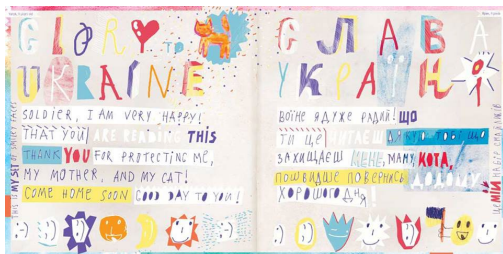 GLORY TO
UKRAINE
SOLDIER, I AM VERY HAPPY!
THAT YOU ARE READING THIS
THANK YOU FOR PROTECTING ME,
MY MOTHER, AND MY CAT!
COME HOME SOON GOOD DAY TO YOU!
THIS IS MY SET OF SMILEY FACES
СЛАВА
УКРАЇНІ
ВОЇНЕ Я ДУЖЕ РАДИЙ! ЩО
ТИ ЦЕ ЧИТАЄШ ДЯКУЮ ТОБІ ЩО
ЗАХИЩАЄШ МЕНЕ, МАМУ, КОТА,
ПОШВИДШЕ ПОВЕРНИСЬ ДОДОМУ.
ХОРОШОГО ДНЯ!
ЦЕ МІЙ НАБІР СМАЙЛИКІВ